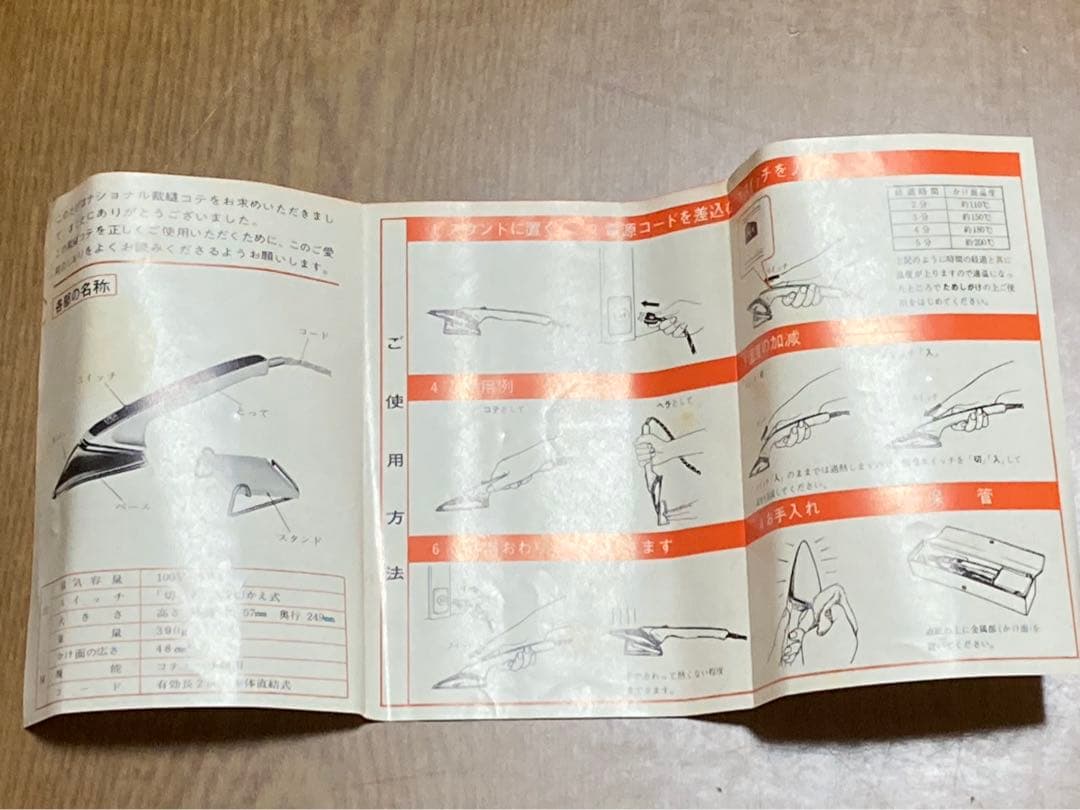 このたびはナショナル裁縫コテをお求めいただきまし
て、まことにありがとうございました。
この裁縫コテを正しくご使用いただくために、このご愛
をよくお読みくださるようお願いします。
各部の名称
コード
スイッチ
とって
ベース
スタンド
電気容量 100
スイッチ 「切 かえ式
大きさ 高さ 57mm 奥行249mm
重量 390g
かけ面の広さ 48
機能 コテ
コード 有効長2m 体直結式
ご使用方法
スタンドに置く
電源コードを差込む
スイッチを入
スイッチ
経過時間 かけ面温度
2分 約110℃
3分 約150℃
4分 約180℃
5分 約200℃
上記のように時間の経過と共に
温度が上りますので適温になっ
たところでためしがけの上ご使
用をはじめてください。
4 用例
コテとして
ヘラとして
温度の加減
「入」
スイッチ
「入」のままでは過熱しま
スイッチを「切」「入」して
してください。
6 おわり ます
さわって熱くない程度
できます。
お手入れ
保管
の上に金属部(かけ面)を
置いてください。